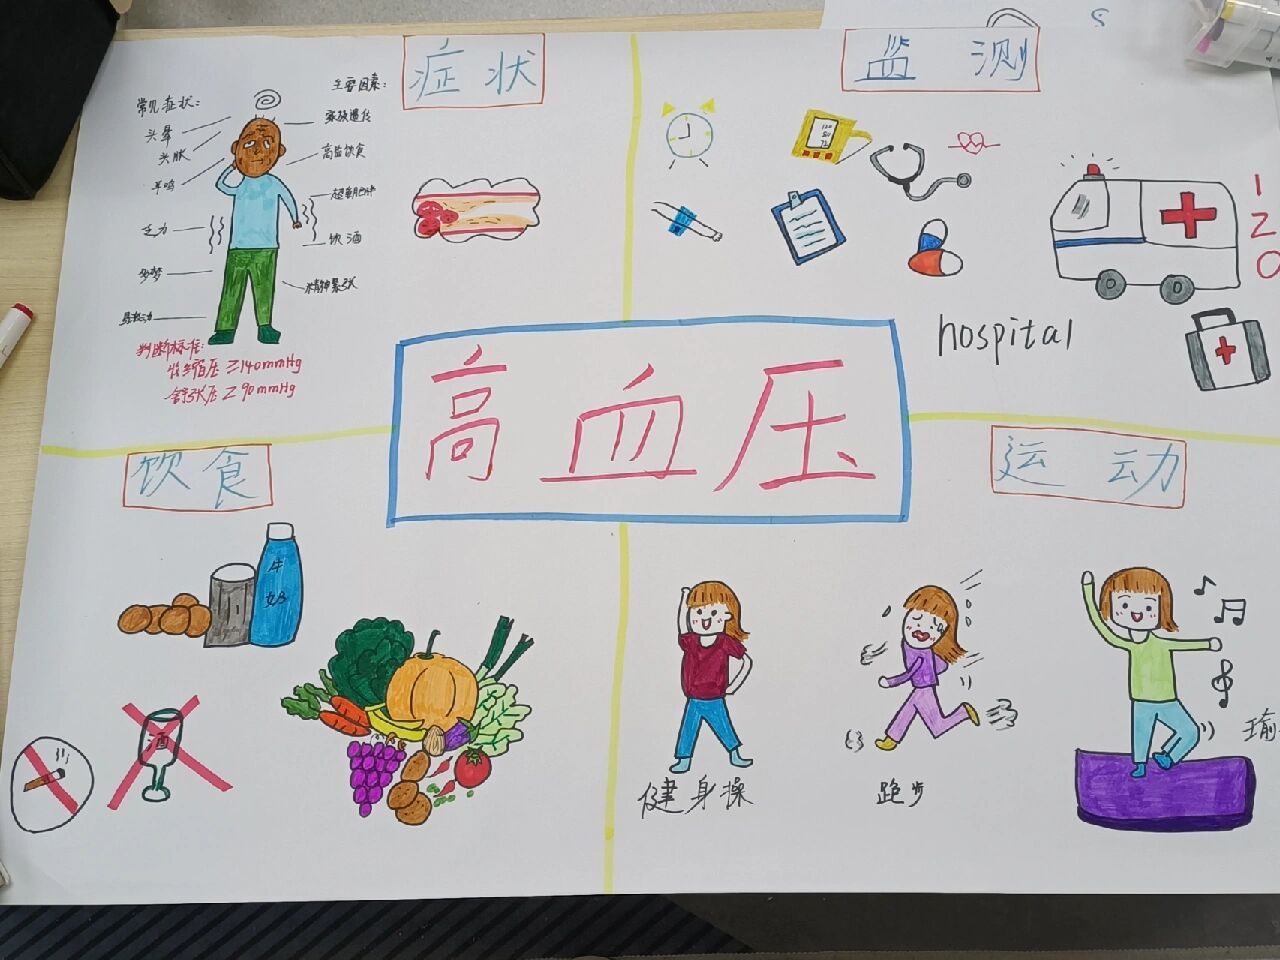 症状
常见症状:
头晕
头胀
耳鸣
乏力
多梦
易激动
主要因素:
家族遗传
高盐饮食
超重肥胖
饮酒
精神紧张
判断标准:
收缩压≥140mmHg
舒张压≥90mmHg
监测
120
hospital
高血压
饮食
牛奶
酒
运动
健身操
跑步
瑜